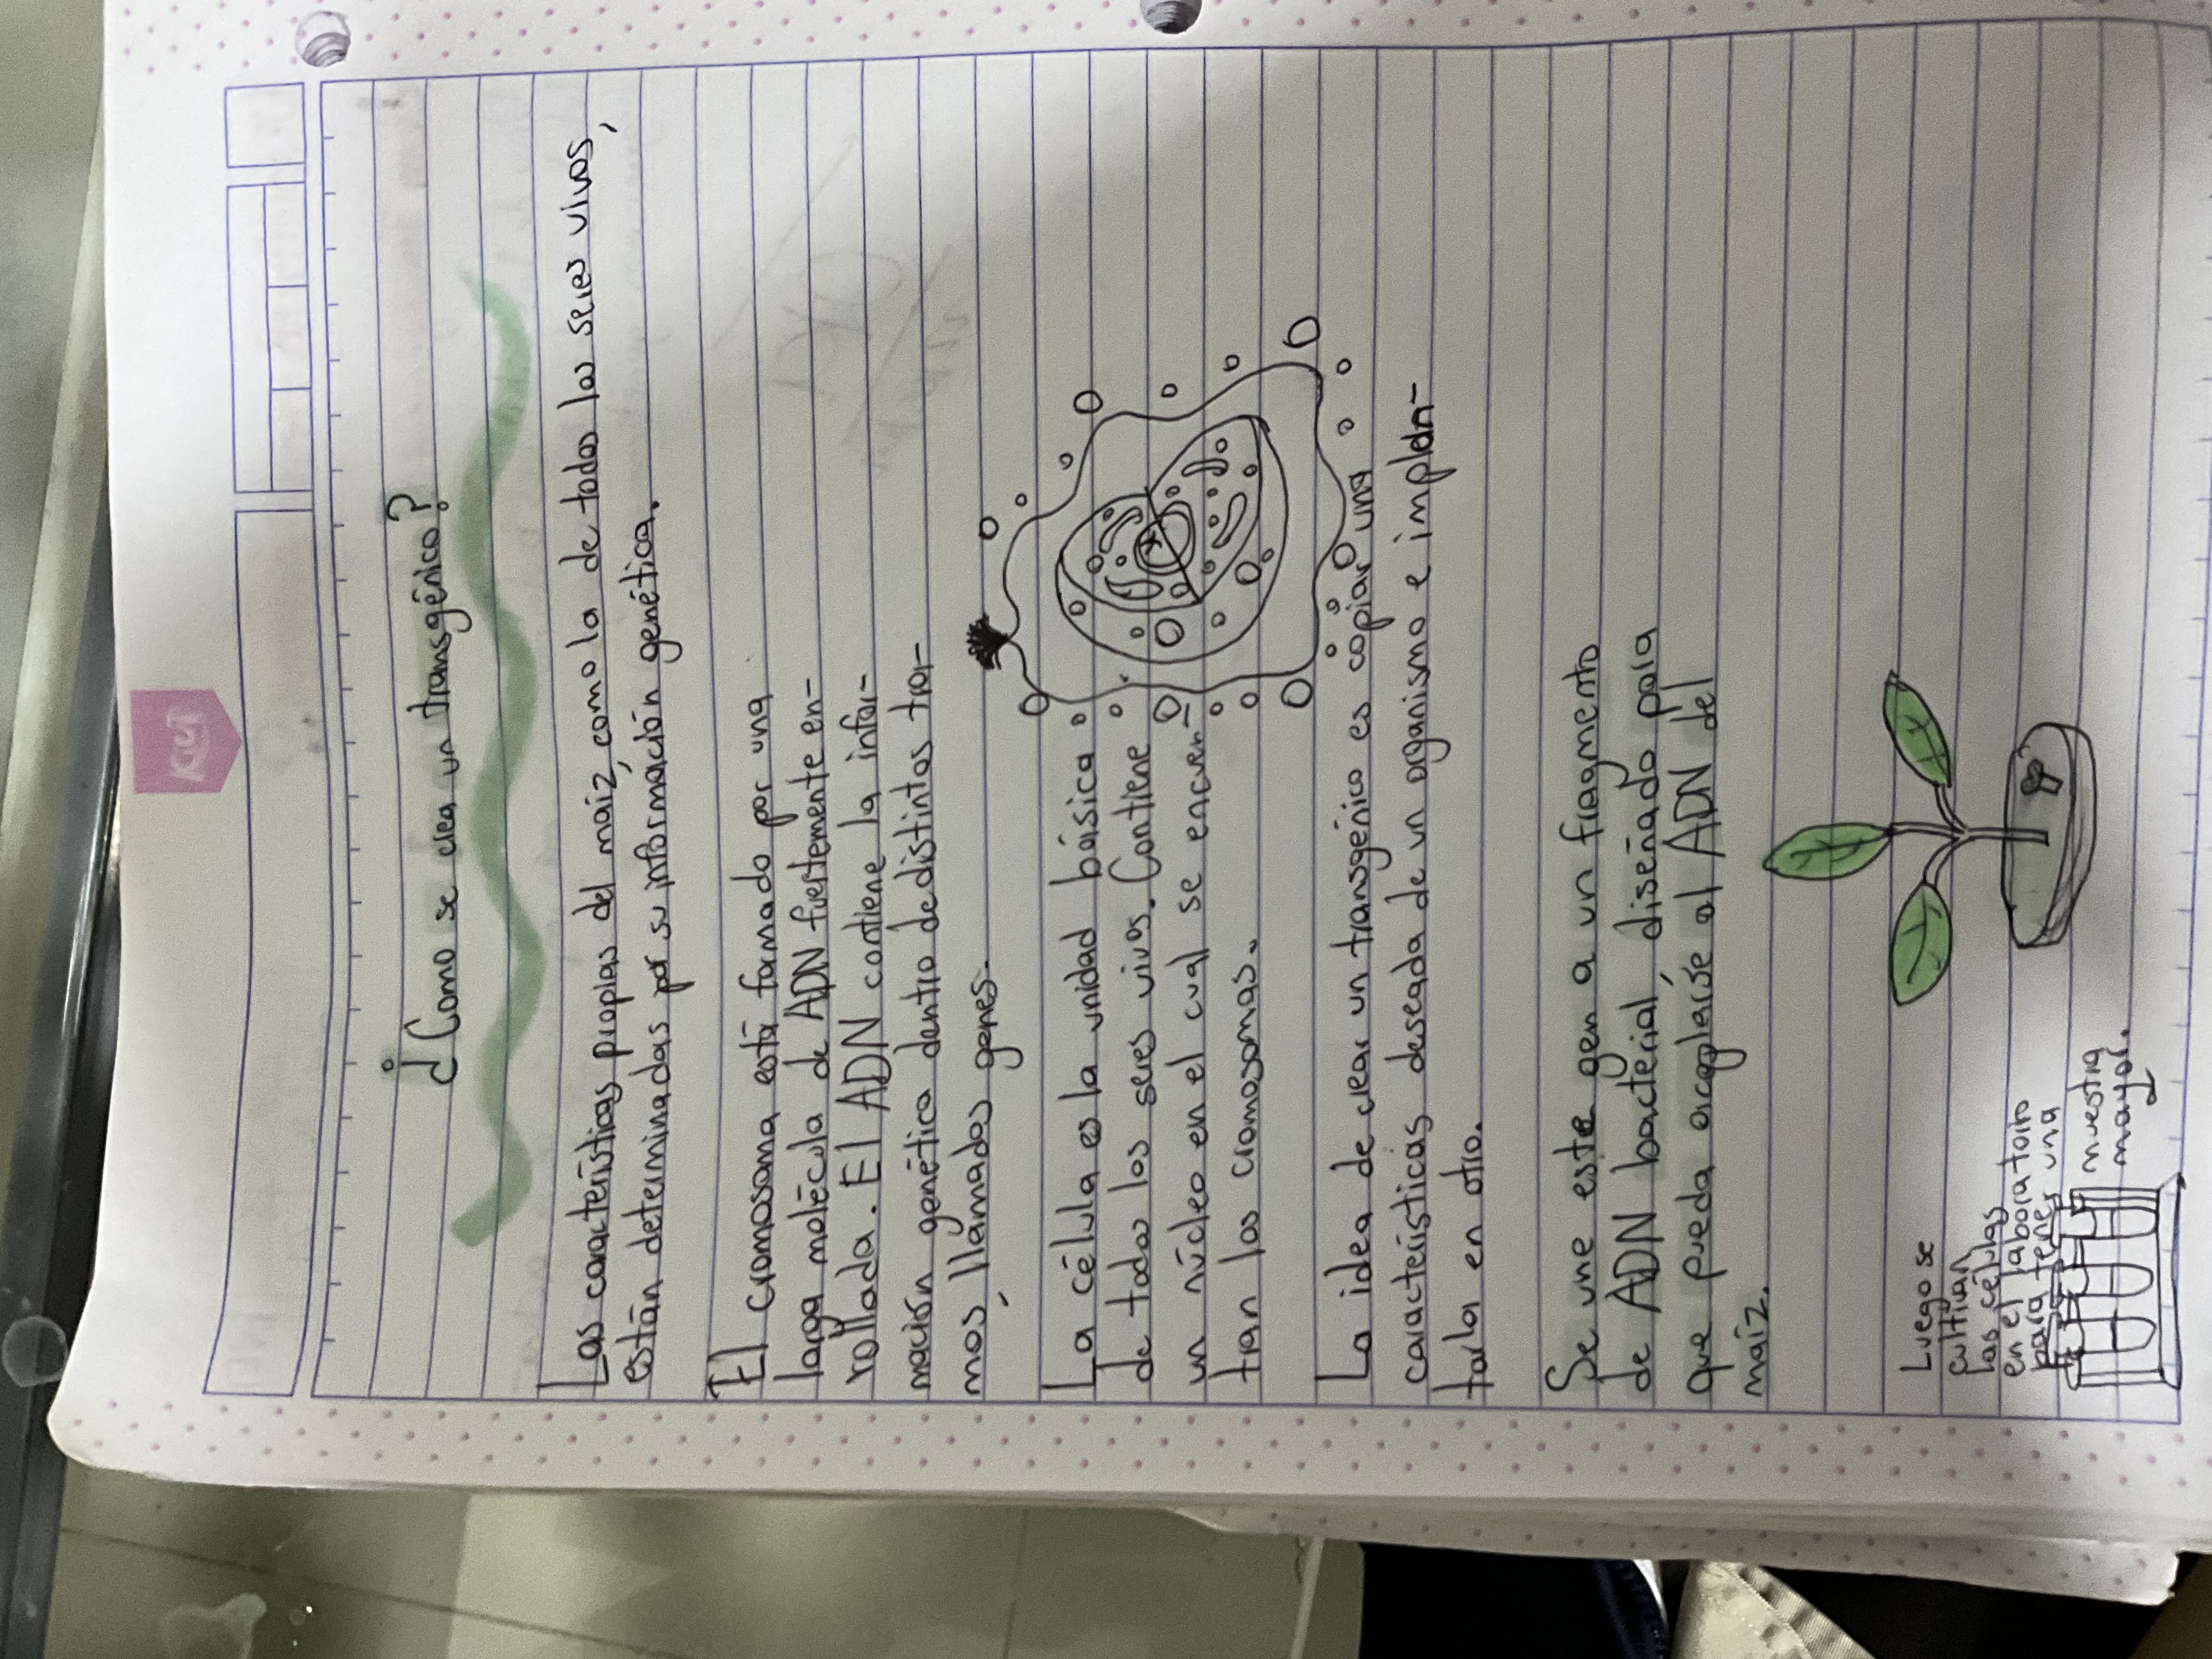 Kiut
¿Como se crea un transgénico?
Las características propias del maíz, como la de todos los seres vivos,
están determinadas por su información genética.
El cromosoma está formado por una
larga molécula de ADN fuertemente en-
rollada. El ADN contiene la infor-
mación genética dentro de distintos tra-
mos, llamados genes.
La célula es la unidad básica
de todos los seres vivos. Contiene
un núcleo en el cual se encuen-
tran los cromosomas.
La idea de crear un transgénico es copiar una
características deseada de un organismo e implan-
tarla en otro.
Se une este gen a un fragmento
de ADN bacterial, diseñado para
que pueda acoplarse al ADN del
maíz.
Luego se
cultivan
las células
en el laboratoiro
para tener una
muestra
mayor.